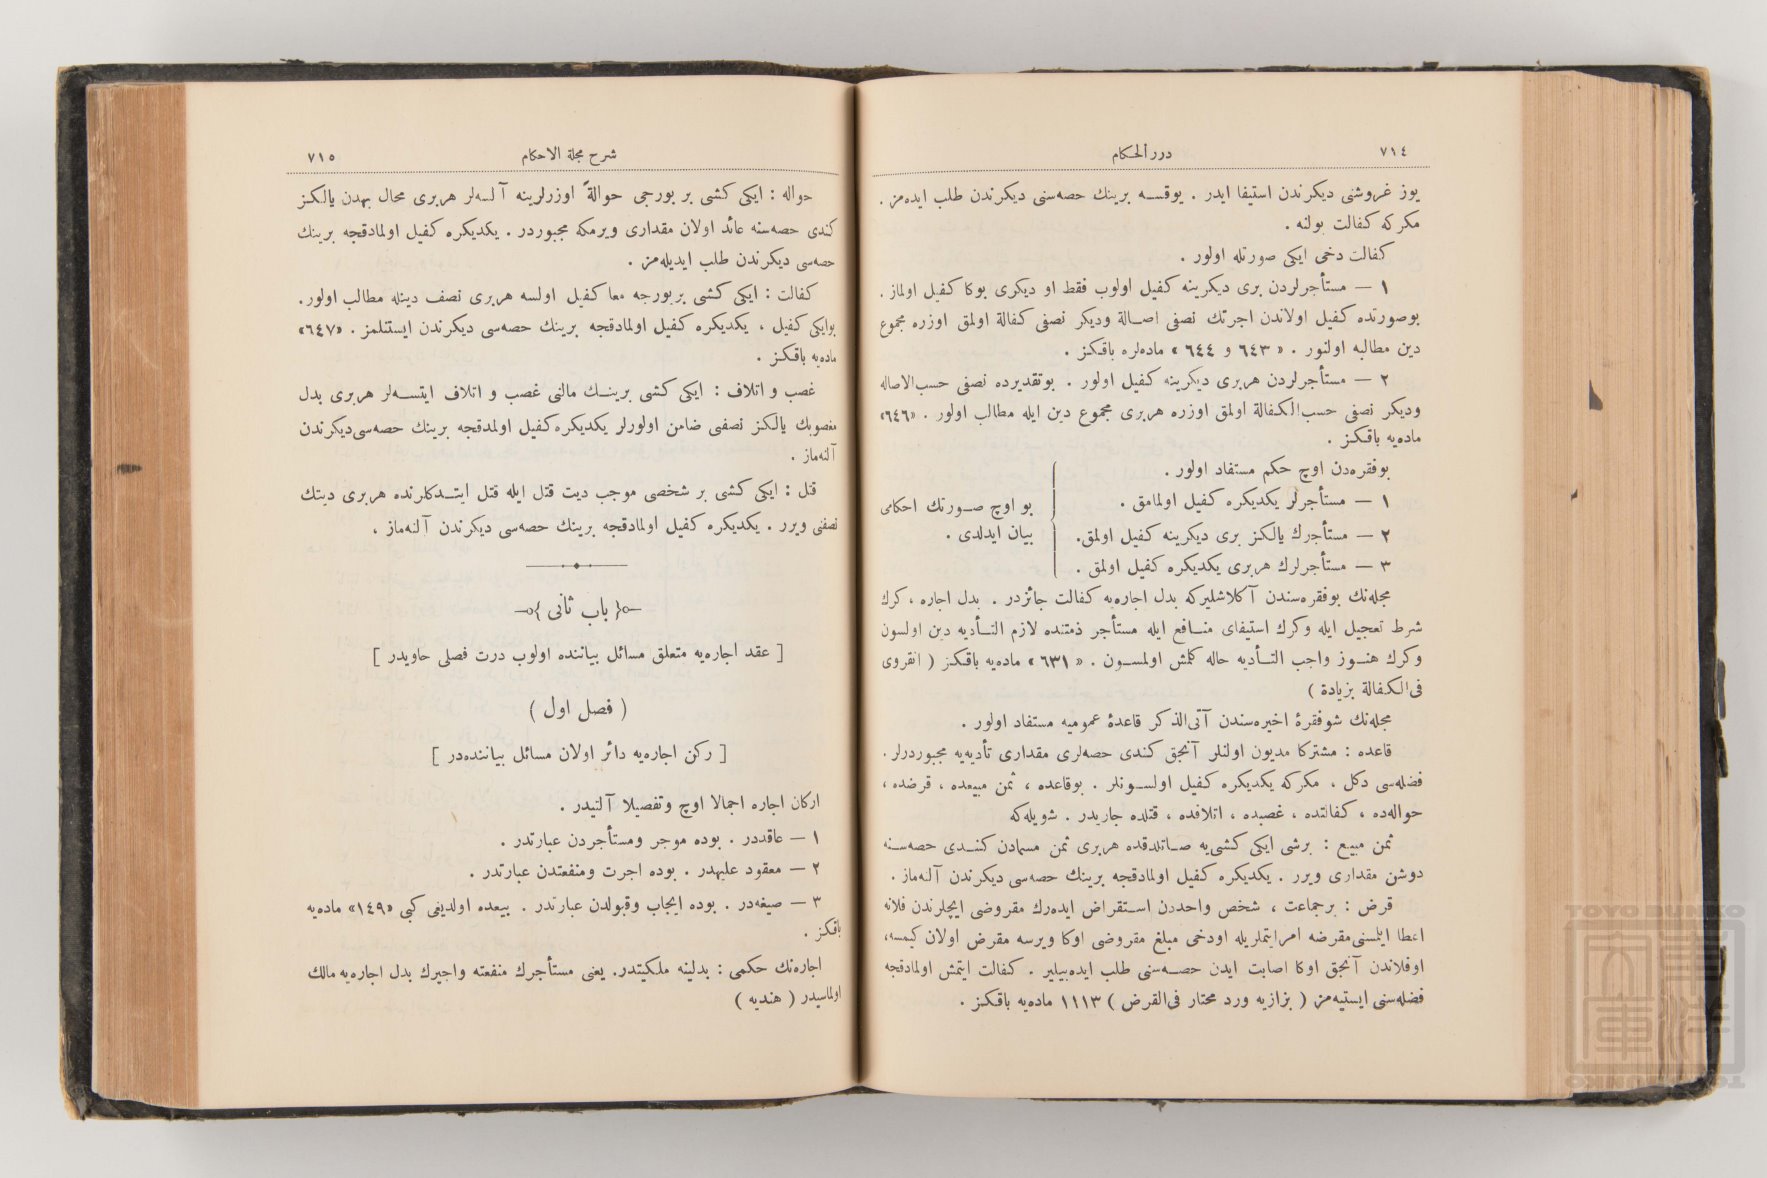 ٧١٤
دررالحكام
يوز غروشنى ديكرندن استيفا ايدر . يوقسه برينك حصه‌سنى ديكرندن طلب ايده‌مز .
مكركه كفالت بولنه .
كفالت دخى ايكى صورتله اولور .
١ — مستأجرلردن برى ديكرينه كفيل اولوب فقط او ديكرى بوكا كفيل اولماز .
بوصورتده كفيل اولاندن اجرتك نصفى اصالة وديكر نصفى كفالة اولمق اوزره مجموع
دين مطالبه اولنور . « ٦٤٣ و ٦٤٤ » ماده‌لره باقكز .
٢ — مستأجرلردن هربرى ديكرينه كفيل اولور . بوتقديرده نصفى حسب‌الاصاله
وديكر نصفى حسب‌الكفالة اولمق اوزره هربرى مجموع دين ايله مطالب اولور . «٦٤٦»
ماده‌يه باقكز .
بوفقره‌دن اوچ حكم مستفاد اولور .
١ — مستأجرلر يكديكره كفيل اولمامق .
٢ — مستأجرك يالكز برى ديكرينه كفيل اولمق.
٣ — مستأجرلرك هربرى يكديكره كفيل اولمق .
بو اوچ صورتك احكامى
بيان ايدلدى .
مجله‌نك بوفقره‌سندن آكلاشليركه بدل اجاره‌يه كفالت جائزدر . بدل اجاره ، كرك
شرط تعجيل ايله وكرك استيفاى منافع ايله مستأجر ذمتنده لازم التأديه دين اولسون
وكرك هنوز واجب التأديه حاله كلمش اولمسون . « ٦٣١ » ماده‌يه باقكز ( انقروى
فى‌الكفالة بزيادة )
مجله‌نك شوفقرۀ اخيره‌سندن آتى‌الذكر قاعدۀ عموميه مستفاد اولور .
قاعده : مشتركا مديون اولنلر آنجق كندى حصه‌لرى مقدارى تأديه‌يه مجبوردرلر .
فضله‌سى دكل . مكركه يكديكره كفيل اولسونلر . بوقاعده ، ثمن مبيعده ، قرضده ،
حواله‌ده ، كفالتده ، غصبده ، اتلافده ، قتلده جاريدر . شويله‌كه
ثمن مبيع : برشى ايكى كشى‌يه صاتلدقده هربرى ثمن مسمادن كندى حصه‌سنه
دوشن مقدارى ويرر . يكديكره كفيل اولمادقجه برينك حصه‌سى ديكرندن آلنه‌ماز .
قرض : برجماعت ، شخص واحددن استقراض ايده‌رك مقروضى ايچلرندن فلانه
اعطا ايلمسنى مقرضه امر ايتملريله اودخى مبلغ مقروضى اوكا ويرسه مقرض اولان كيمسه،
اوفلاندن آنجق اوكا اصابت ايدن حصه‌سنى طلب ايده‌بيلير . كفالت ايتمش اولمادقجه
فضله‌سنى ايستيه‌مز ( بزازيه ورد محتار فى‌القرض ) ١١١٣ ماده‌يه باقكز .
شرح مجلة الاحكام
٧١٥
حواله : ايكى كشى بر بورجى حوالةً اوزرلرينه آلسه‌لر هربرى محال بهدن يالكز
كندى حصه‌سنه عائد اولان مقدارى ويرمكه مجبوردر . يكديكره كفيل اولمادقجه برينك
حصه‌سى ديكرندن طلب ايديله‌مز .
كفالت : ايكى كشى بربورجه معا كفيل اولسه هربرى نصف دينله مطالب اولور.
بوايكى كفيل ، يكديكره كفيل اولمادقجه برينك حصه‌سى ديكرندن ايستنلمز . «٦٤٧»
ماده‌يه باقكز .
غصب و اتلاف : ايكى كشى برينك مالنى غصب و اتلاف ايتسه‌لر هربرى بدل
مغصوبك يالكز نصفنى ضامن اولورلر يكديكره كفيل اولمدقجه برينك حصه‌سى ديكرندن
آلنه‌ماز .
قتل : ايكى كشى بر شخصى موجب ديت قتل ايله قتل ايتدكلرنده هربرى ديتك
نصفنى ويرر . يكديكره كفيل اولمادقجه برينك حصه‌سى ديكرندن آلنه‌ماز .
﴿ باب ثانى ﴾
[ عقد اجاره‌يه متعلق مسائل بياننده اولوب درت فصلى حاويدر ]
( فصل اول )
[ ركن اجاره‌يه دائر اولان مسائل بياننده‌در ]
اركان اجاره اجمالا اوچ وتفصيلا آلتيدر .
١ — عاقددر . بوده موجر ومستأجردن عبارتدر .
٢ — معقود عليهدر . بوده اجرت ومنفعتدن عبارتدر .
٣ — صيغه‌در . بوده ايجاب وقبولدن عبارتدر . بيعده اولديغى كبى «١٤٩» ماده‌يه
باقكز .
اجاره‌نك حكمى : بدلينه ملكيتدر. يعنى مستأجرك منفعته واجيرك بدل اجاره‌يه مالك
اولماسيدر ( هنديه )
TOYO BUNKO
東洋文庫
TOYO BUNKO